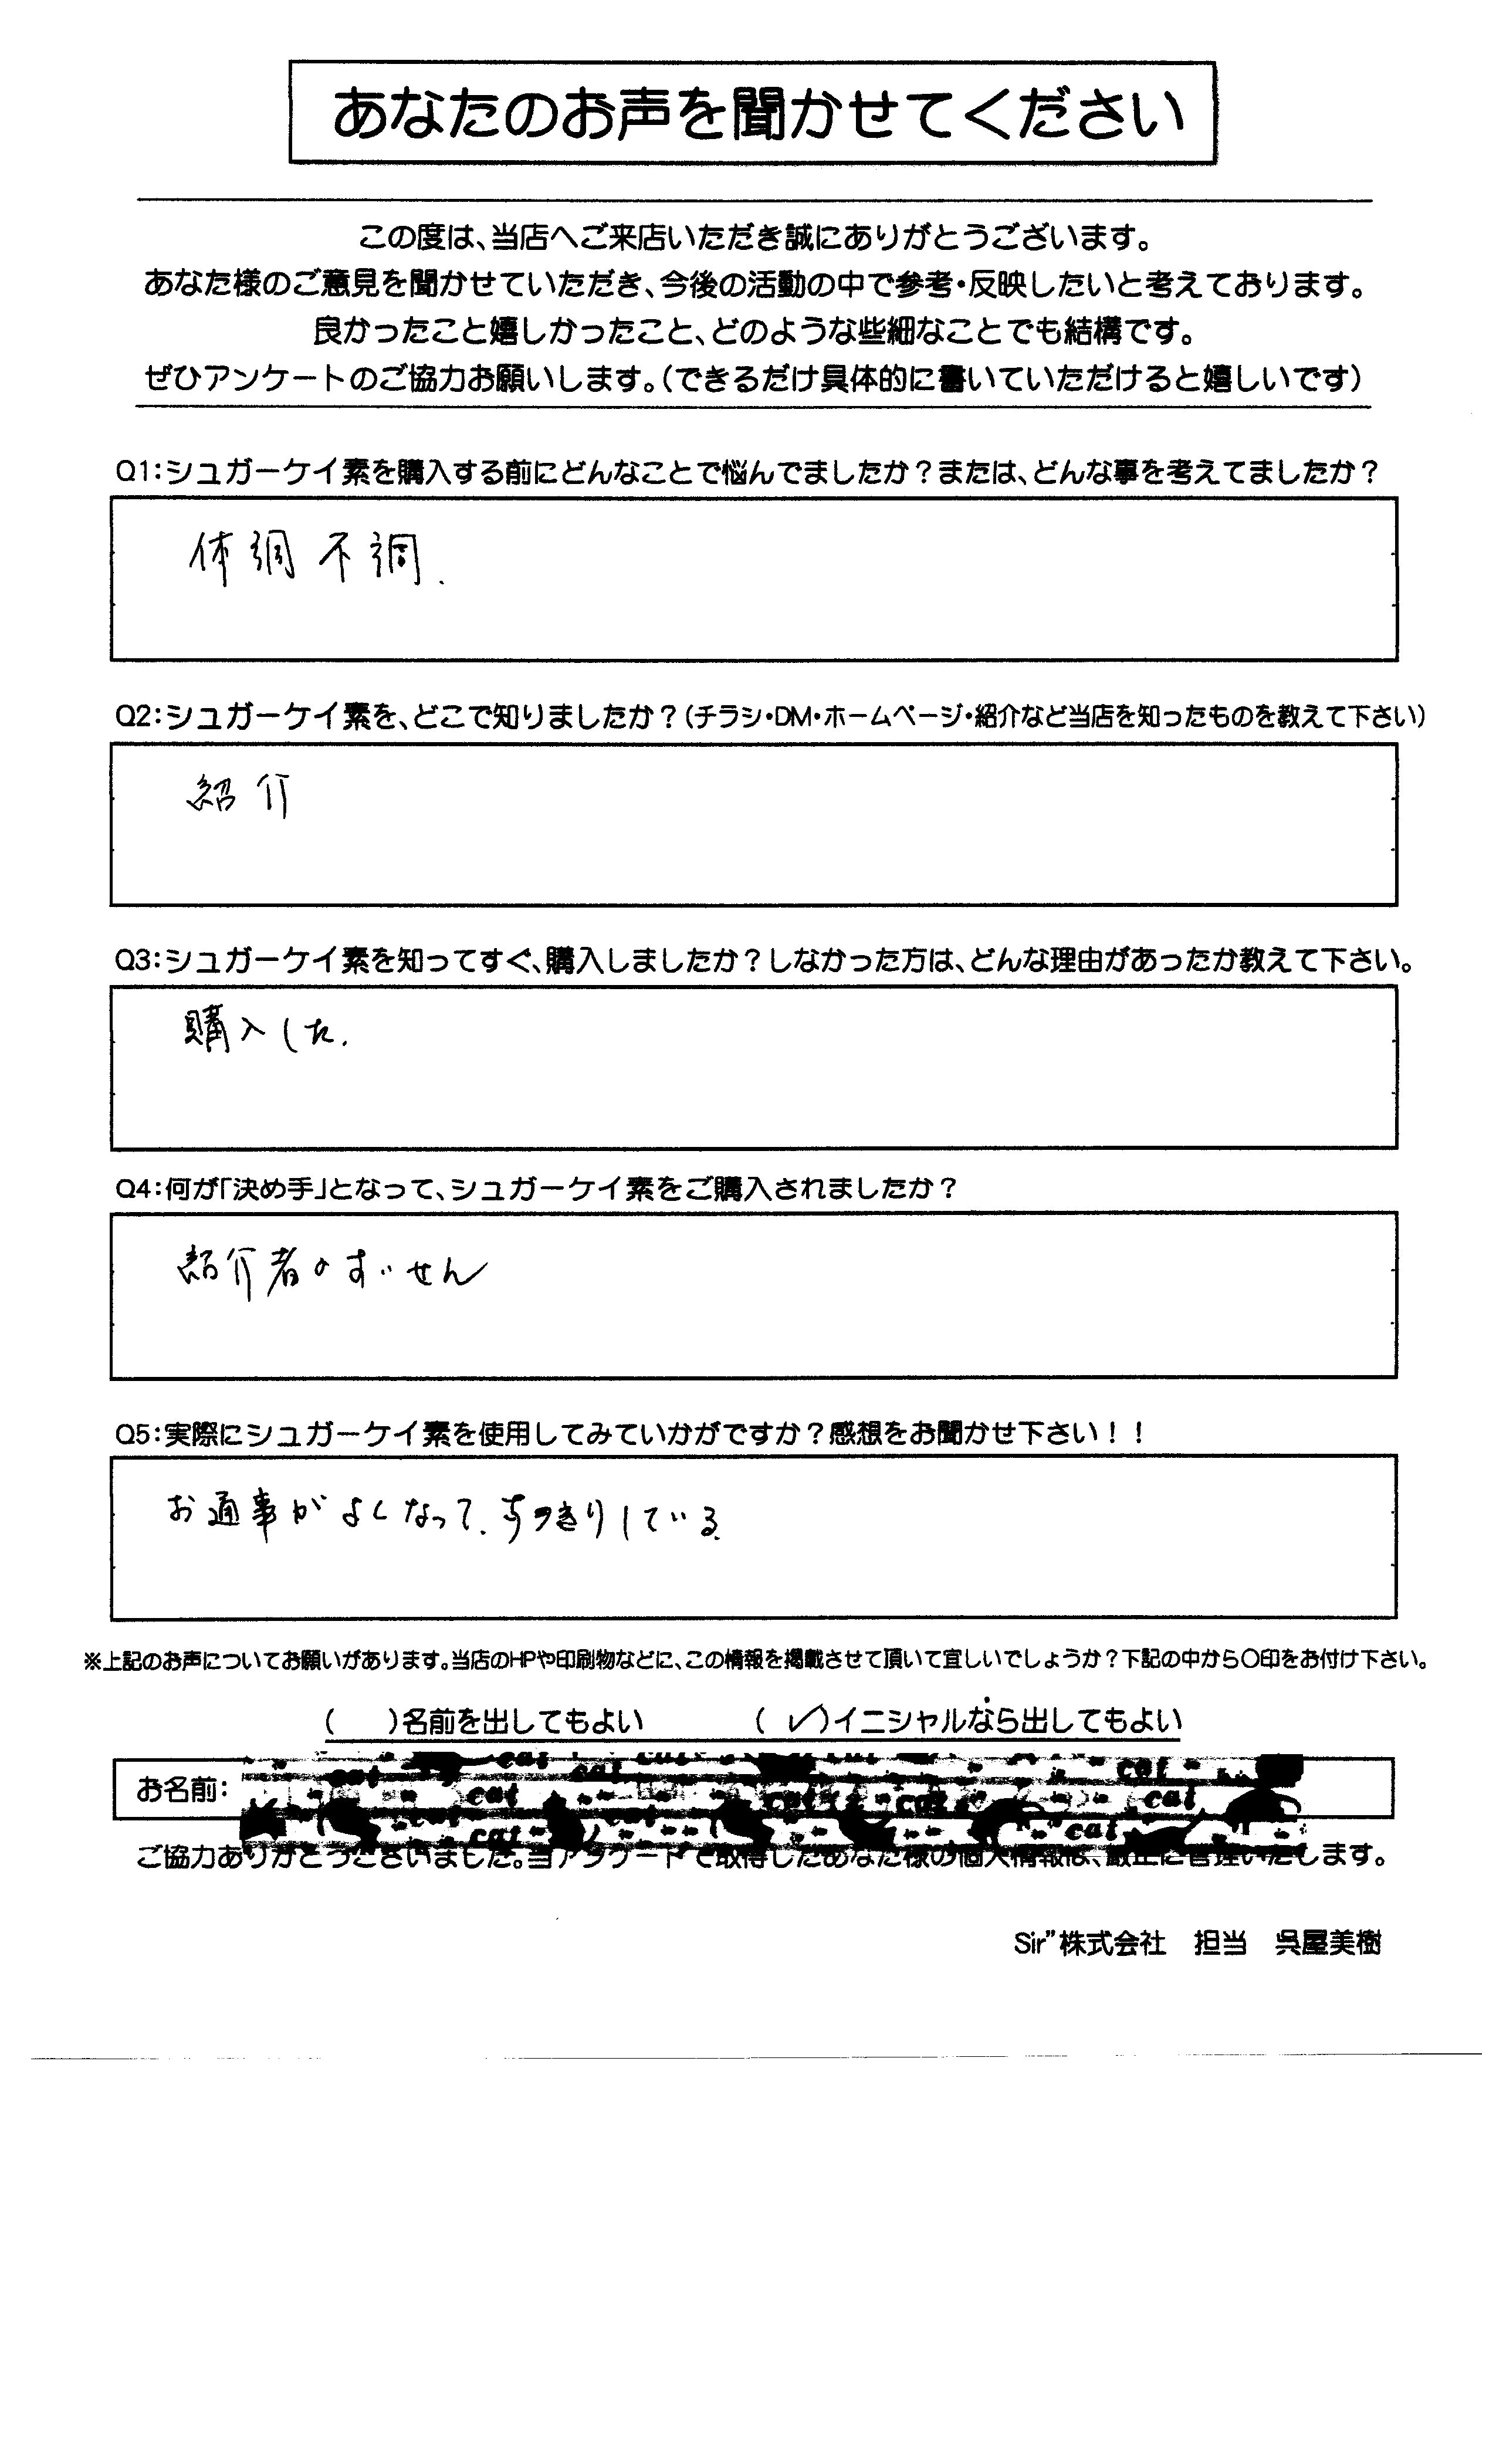 あなたのお声を聞かせてください
この度は、当店へご来店いただき誠にありがとうございます。
あなた様のご意見を聞かせていただき、今後の活動の中で参考・反映したいと考えております。
良かったこと嬉しかったこと、どのような些細なことでも結構です。
ぜひアンケートのご協力お願いします。(できるだけ具体的に書いていただけると嬉しいです)
Q1:シュガーケイ素を購入する前にどんなことで悩んでましたか?または、どんな事を考えてましたか?
体調不調.
Q2:シュガーケイ素を、どこで知りましたか?(チラシ・DM・ホームページ・紹介など当店を知ったものを教えて下さい)
紹介
Q3:シュガーケイ素を知ってすぐ、購入しましたか?しなかった方は、どんな理由があったか教えて下さい。
購入した.
Q4:何が「決め手」となって、シュガーケイ素をご購入されましたか?
紹介者のすいせん
Q5:実際にシュガーケイ素を使用してみていかがですか?感想をお聞かせ下さい!!
お通事がよくなって、すっきりしている.
※上記のお声についてお願いがあります。当店のHPや印刷物などに、この情報を掲載させて頂いて宜しいでしょうか?下記の中から〇印をお付け下さい。
(　)名前を出してもよい　(✓)イニシャルなら出してもよい
お名前:
cat cat cat cat cat cat cat cat
ご協力ありがとうございました。当アンケートで取得したあなた様の個人情報は、厳正に管理いたします。
Sir”株式会社　担当　呉屋美樹